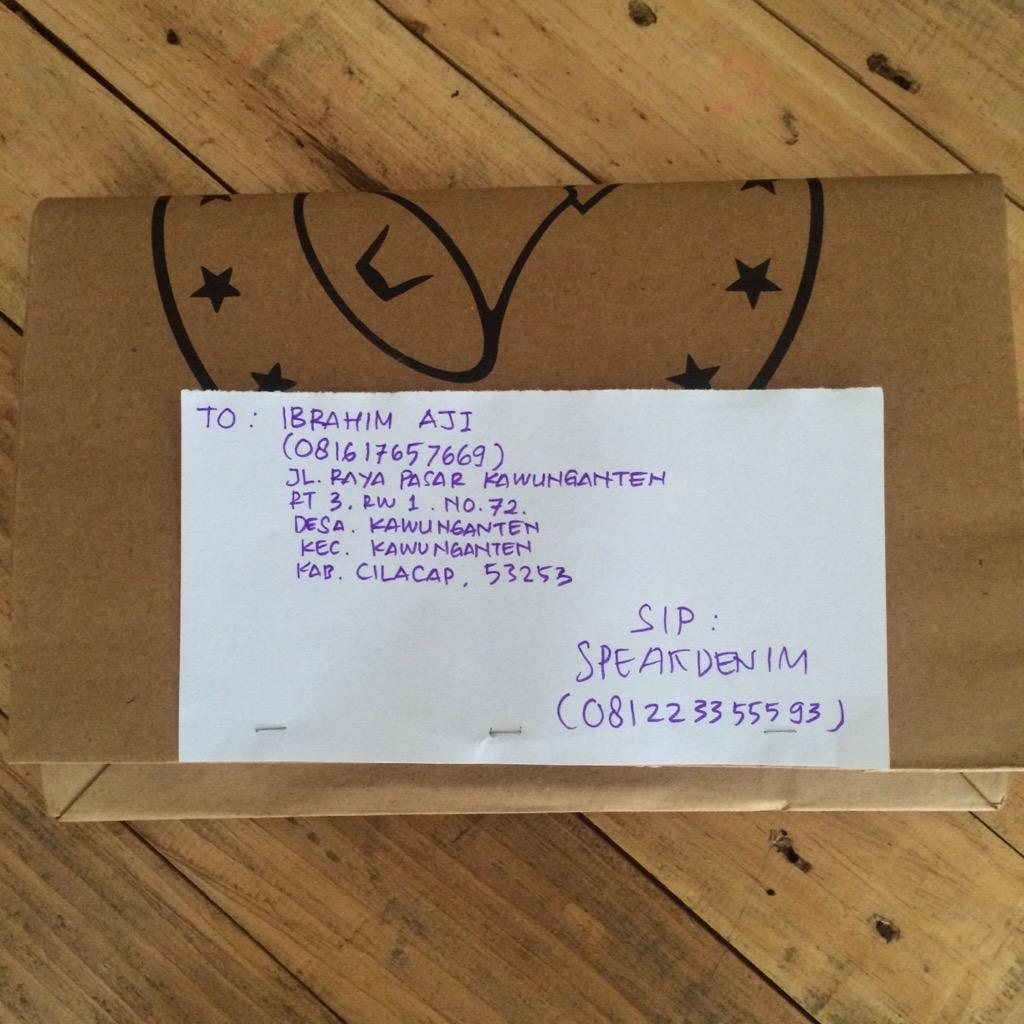 TO : IBRAHIM AJI
(081617657669)
JL. RAYA PASAR KAWUNGANTEN
RT 3. RW 1. NO. 72.
DESA. KAWUNGANTEN
KEC. KAWUNGANTEN
KAB. CILACAP, 53253
SIP :
SPEAKDENIM
(081223355593)